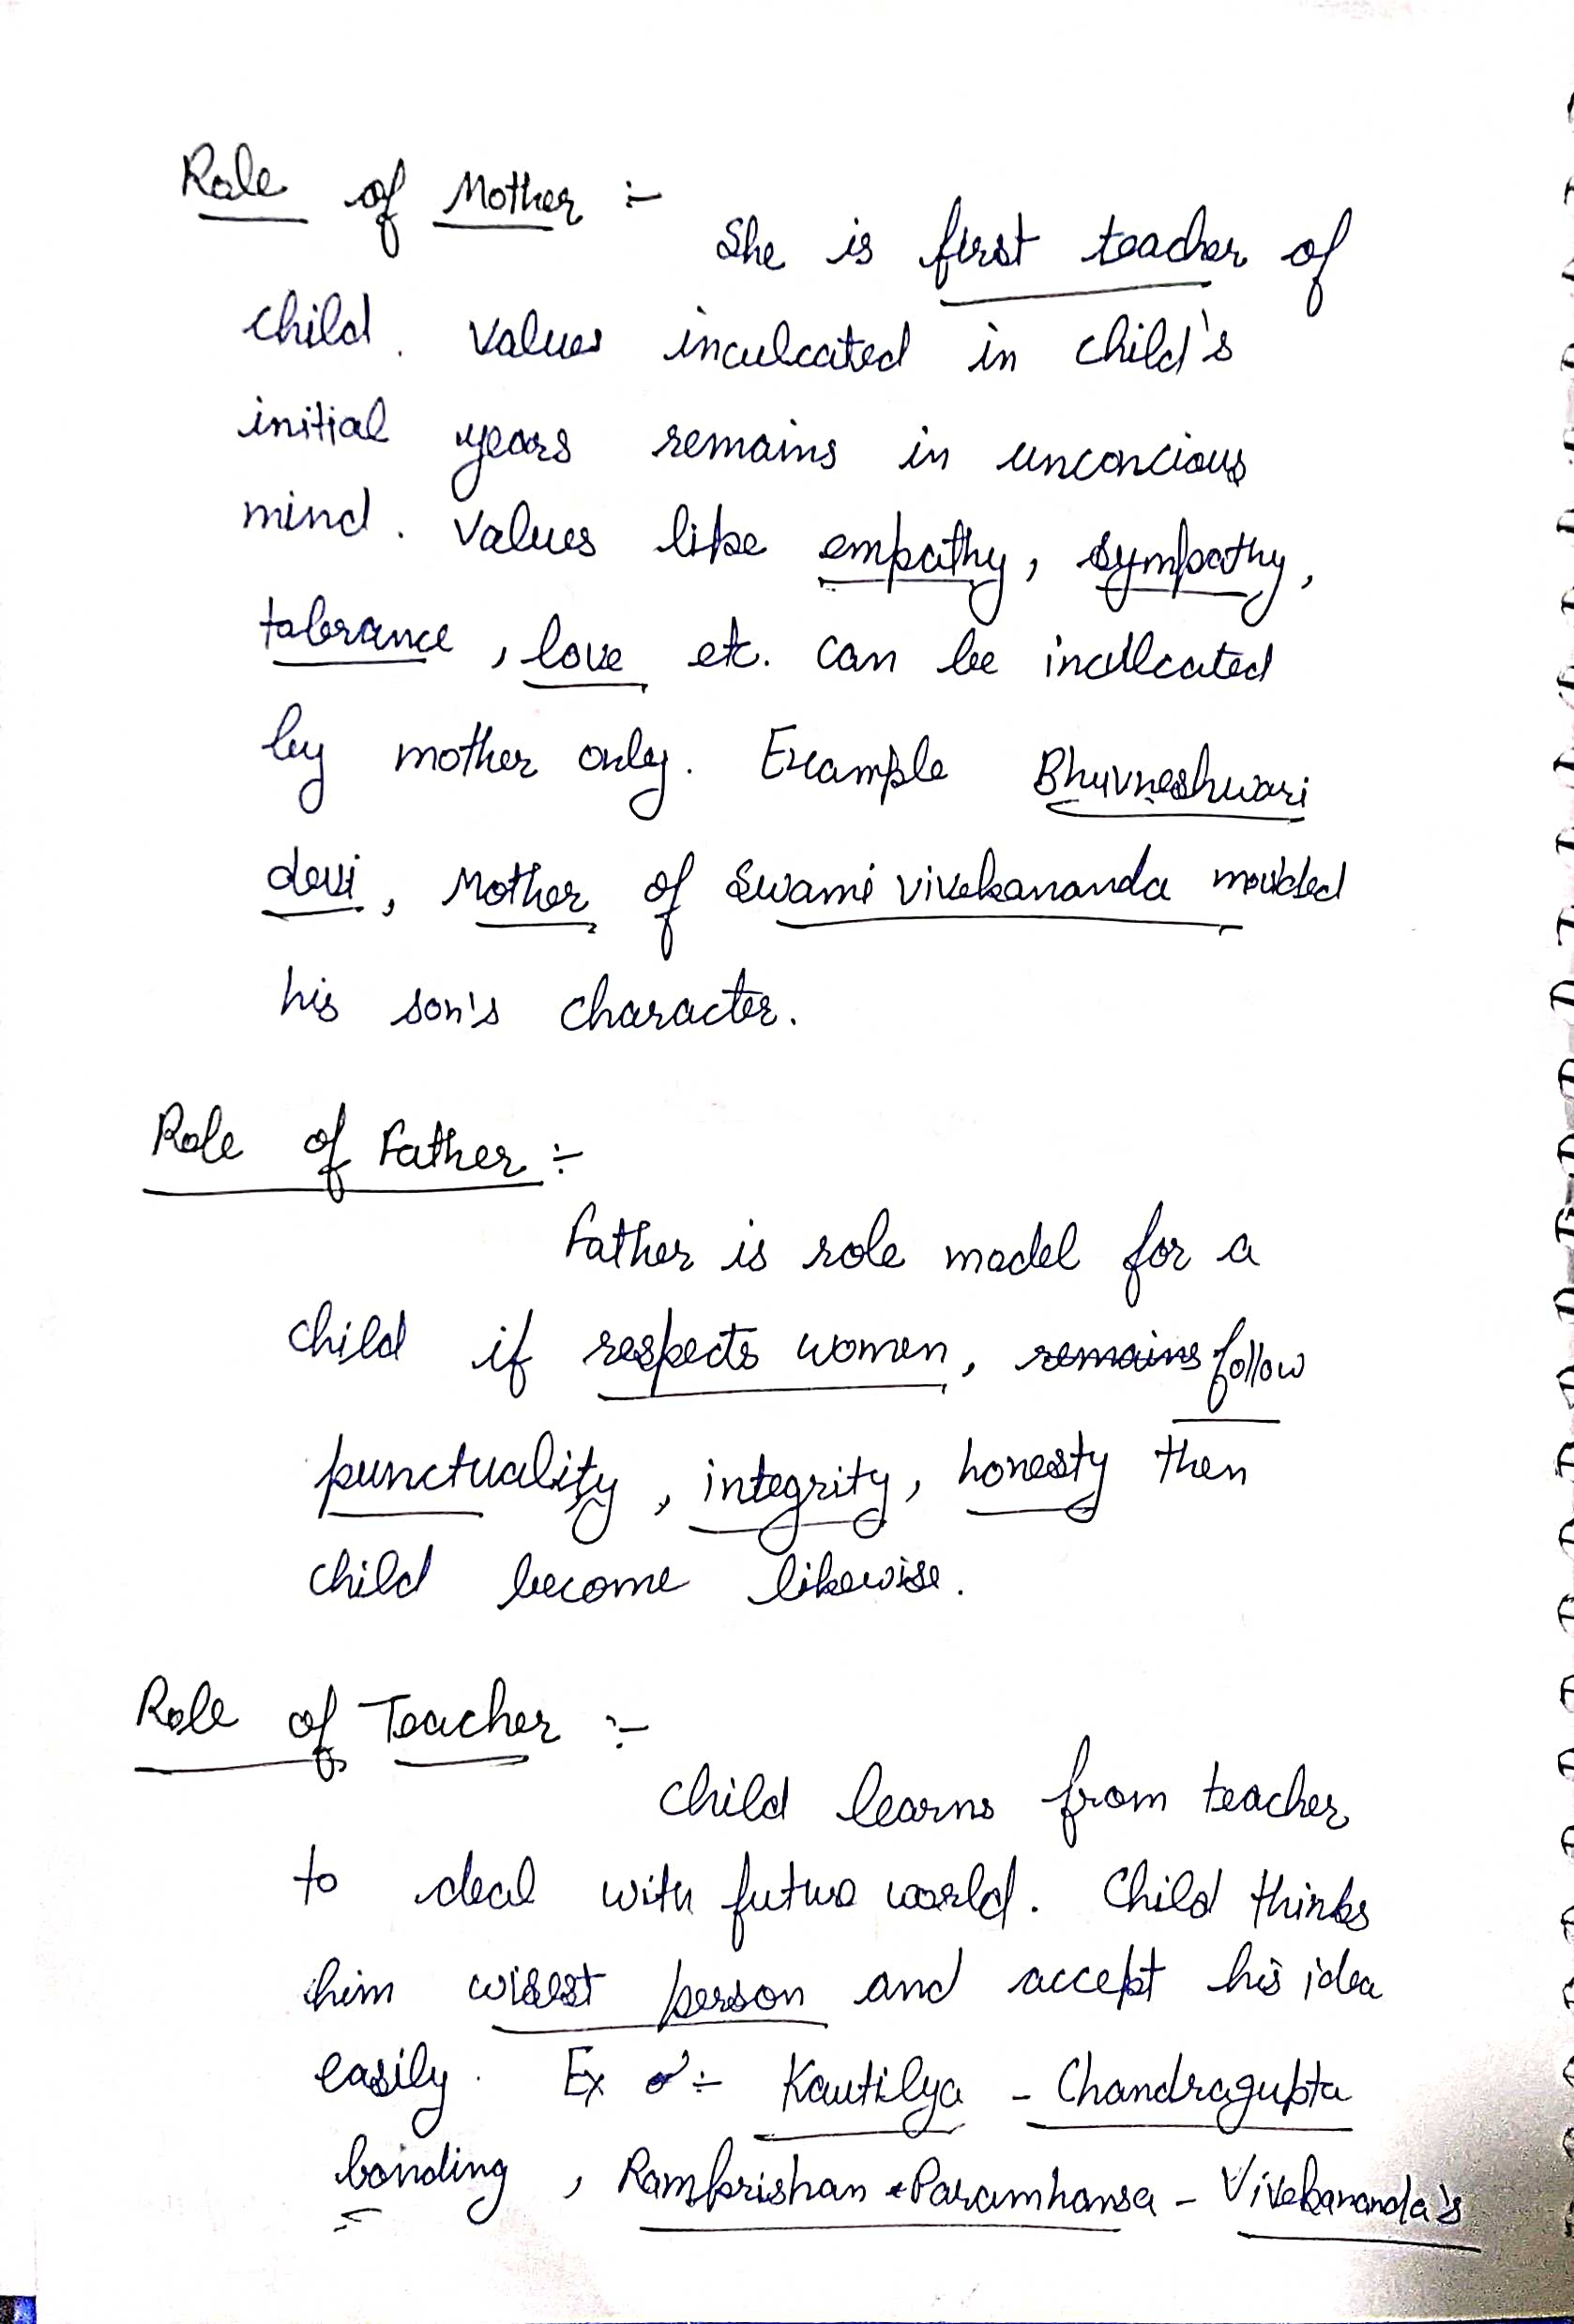 Role of Mother :-
She is first teacher of
child. Values inculcated in child's
initial years remains in unconcious
mind. Values like empathy, sympathy,
tolerance, love etc. can be inculcated
by mother only. Example Bhuvneshwari
devi, Mother of Swami Vivekananda moulded
his son's character.
Role of Father :-
Father is role model for a
child if respects women, remains follow
punctuality, integrity, honesty then
child become likewise.
Role of Teacher :-
Child learns from teacher
to deal with future world. Child thinks
him wisest person and accept his idea
easily. Ex :- Kautilya - Chandragupta
bonding, Ramkrishan Paramhansa - Vivekananda's